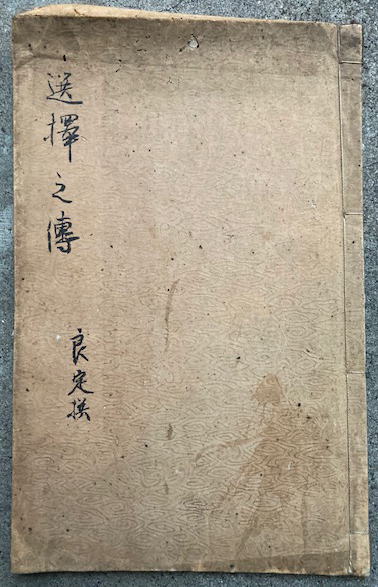 選擇之傳
良定撰